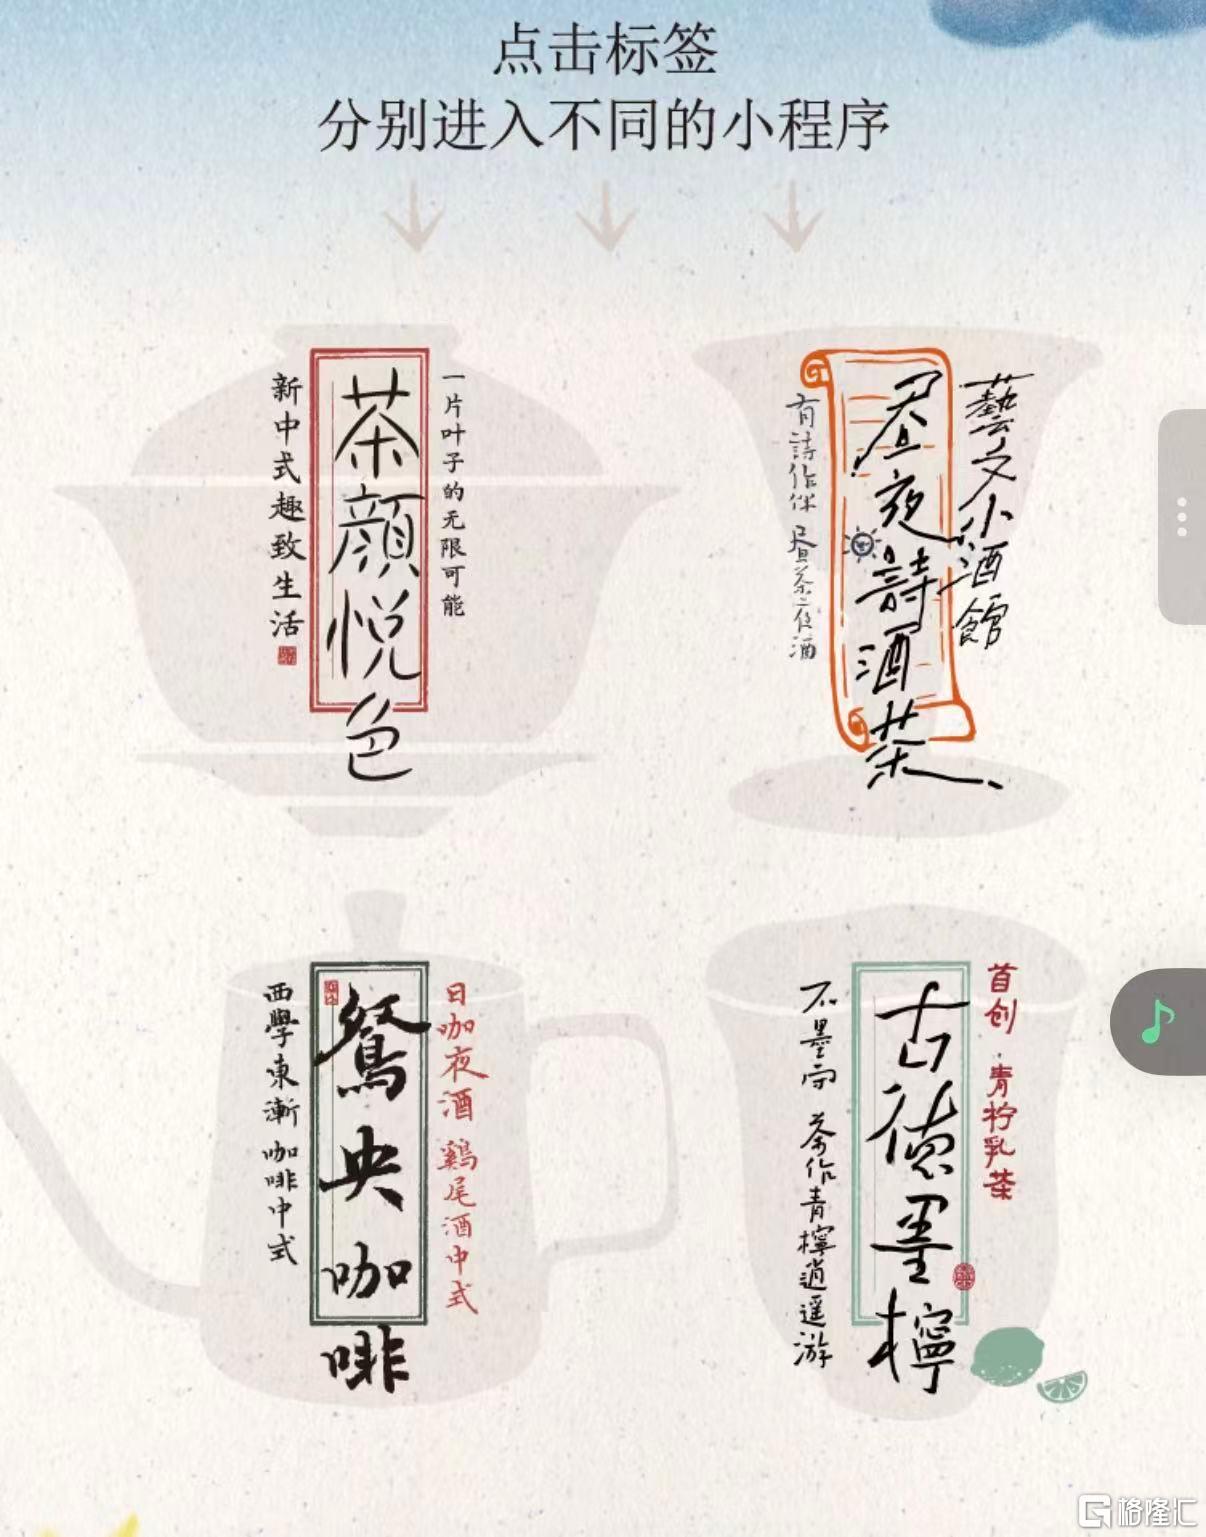 点击标签
分别进入不同的小程序
一片叶子的无限可能
茶颜悦色
新中式趣致生活
藝文小酒館
昼夜詩酒茶
有詩作伴 昼茶夜酒
日咖夜酒 鷄尾酒中式
鴛央咖啡
西學東漸 咖啡中式
首创·青柠乳茶
古德墨檸
不墨守 茶作青檸逍遥游
格隆汇